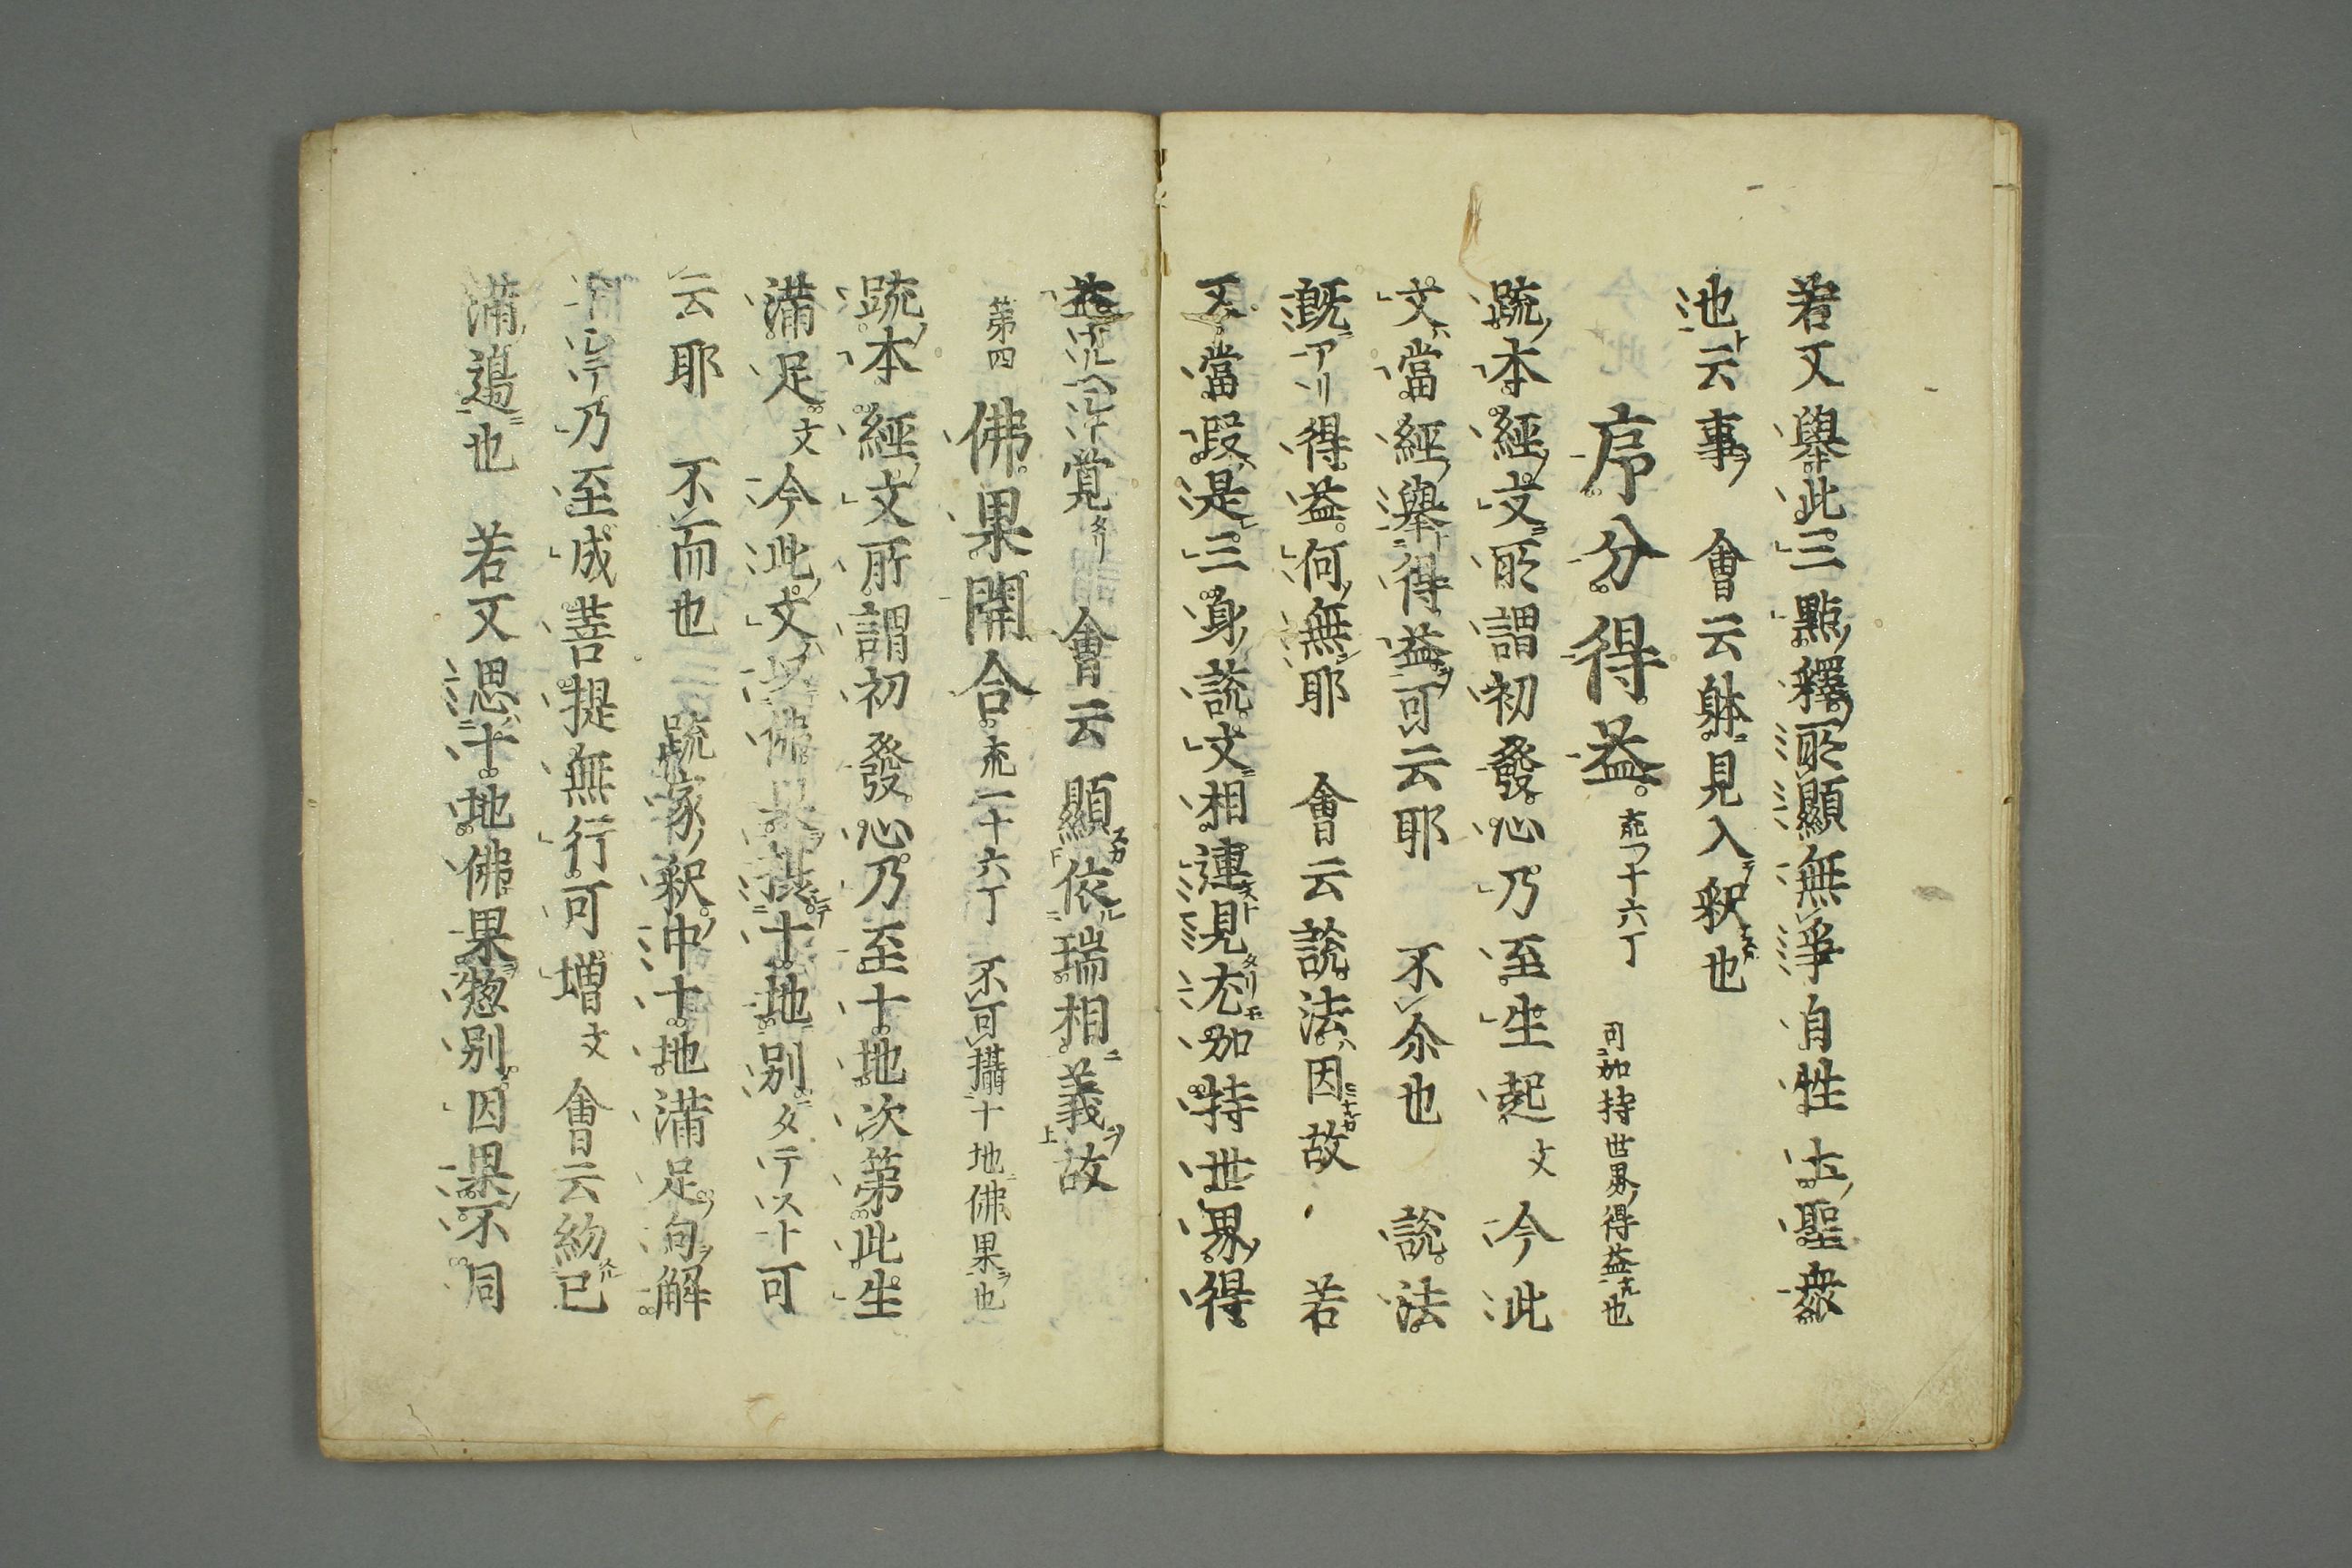 若又擧此三點釋所顯無淨自性土聖衆
池ト云事 會云躰見入釈也
序分得益 十六丁 可加持世界得益也
䟽本經文所謂初發心乃至生起文今此
文當經擧得益可云耶 不尒也 說法
既アリ得益何無耶 會云說法因故 若
又當段是三身說文相連見加持世界得
益 覚タリ 會云顯依瑞相義故
第四 佛果開合 一十六丁 不可攝十地佛果也
䟽本經文所謂初發心乃至十地次第此生
滿足文今此文佛果十地別タテスト可
云耶 不而也 䟽家釈中十地滿足句解
乃至成菩提無行可增文 會云約已
滿邊也 若又思十地佛果別因果不同